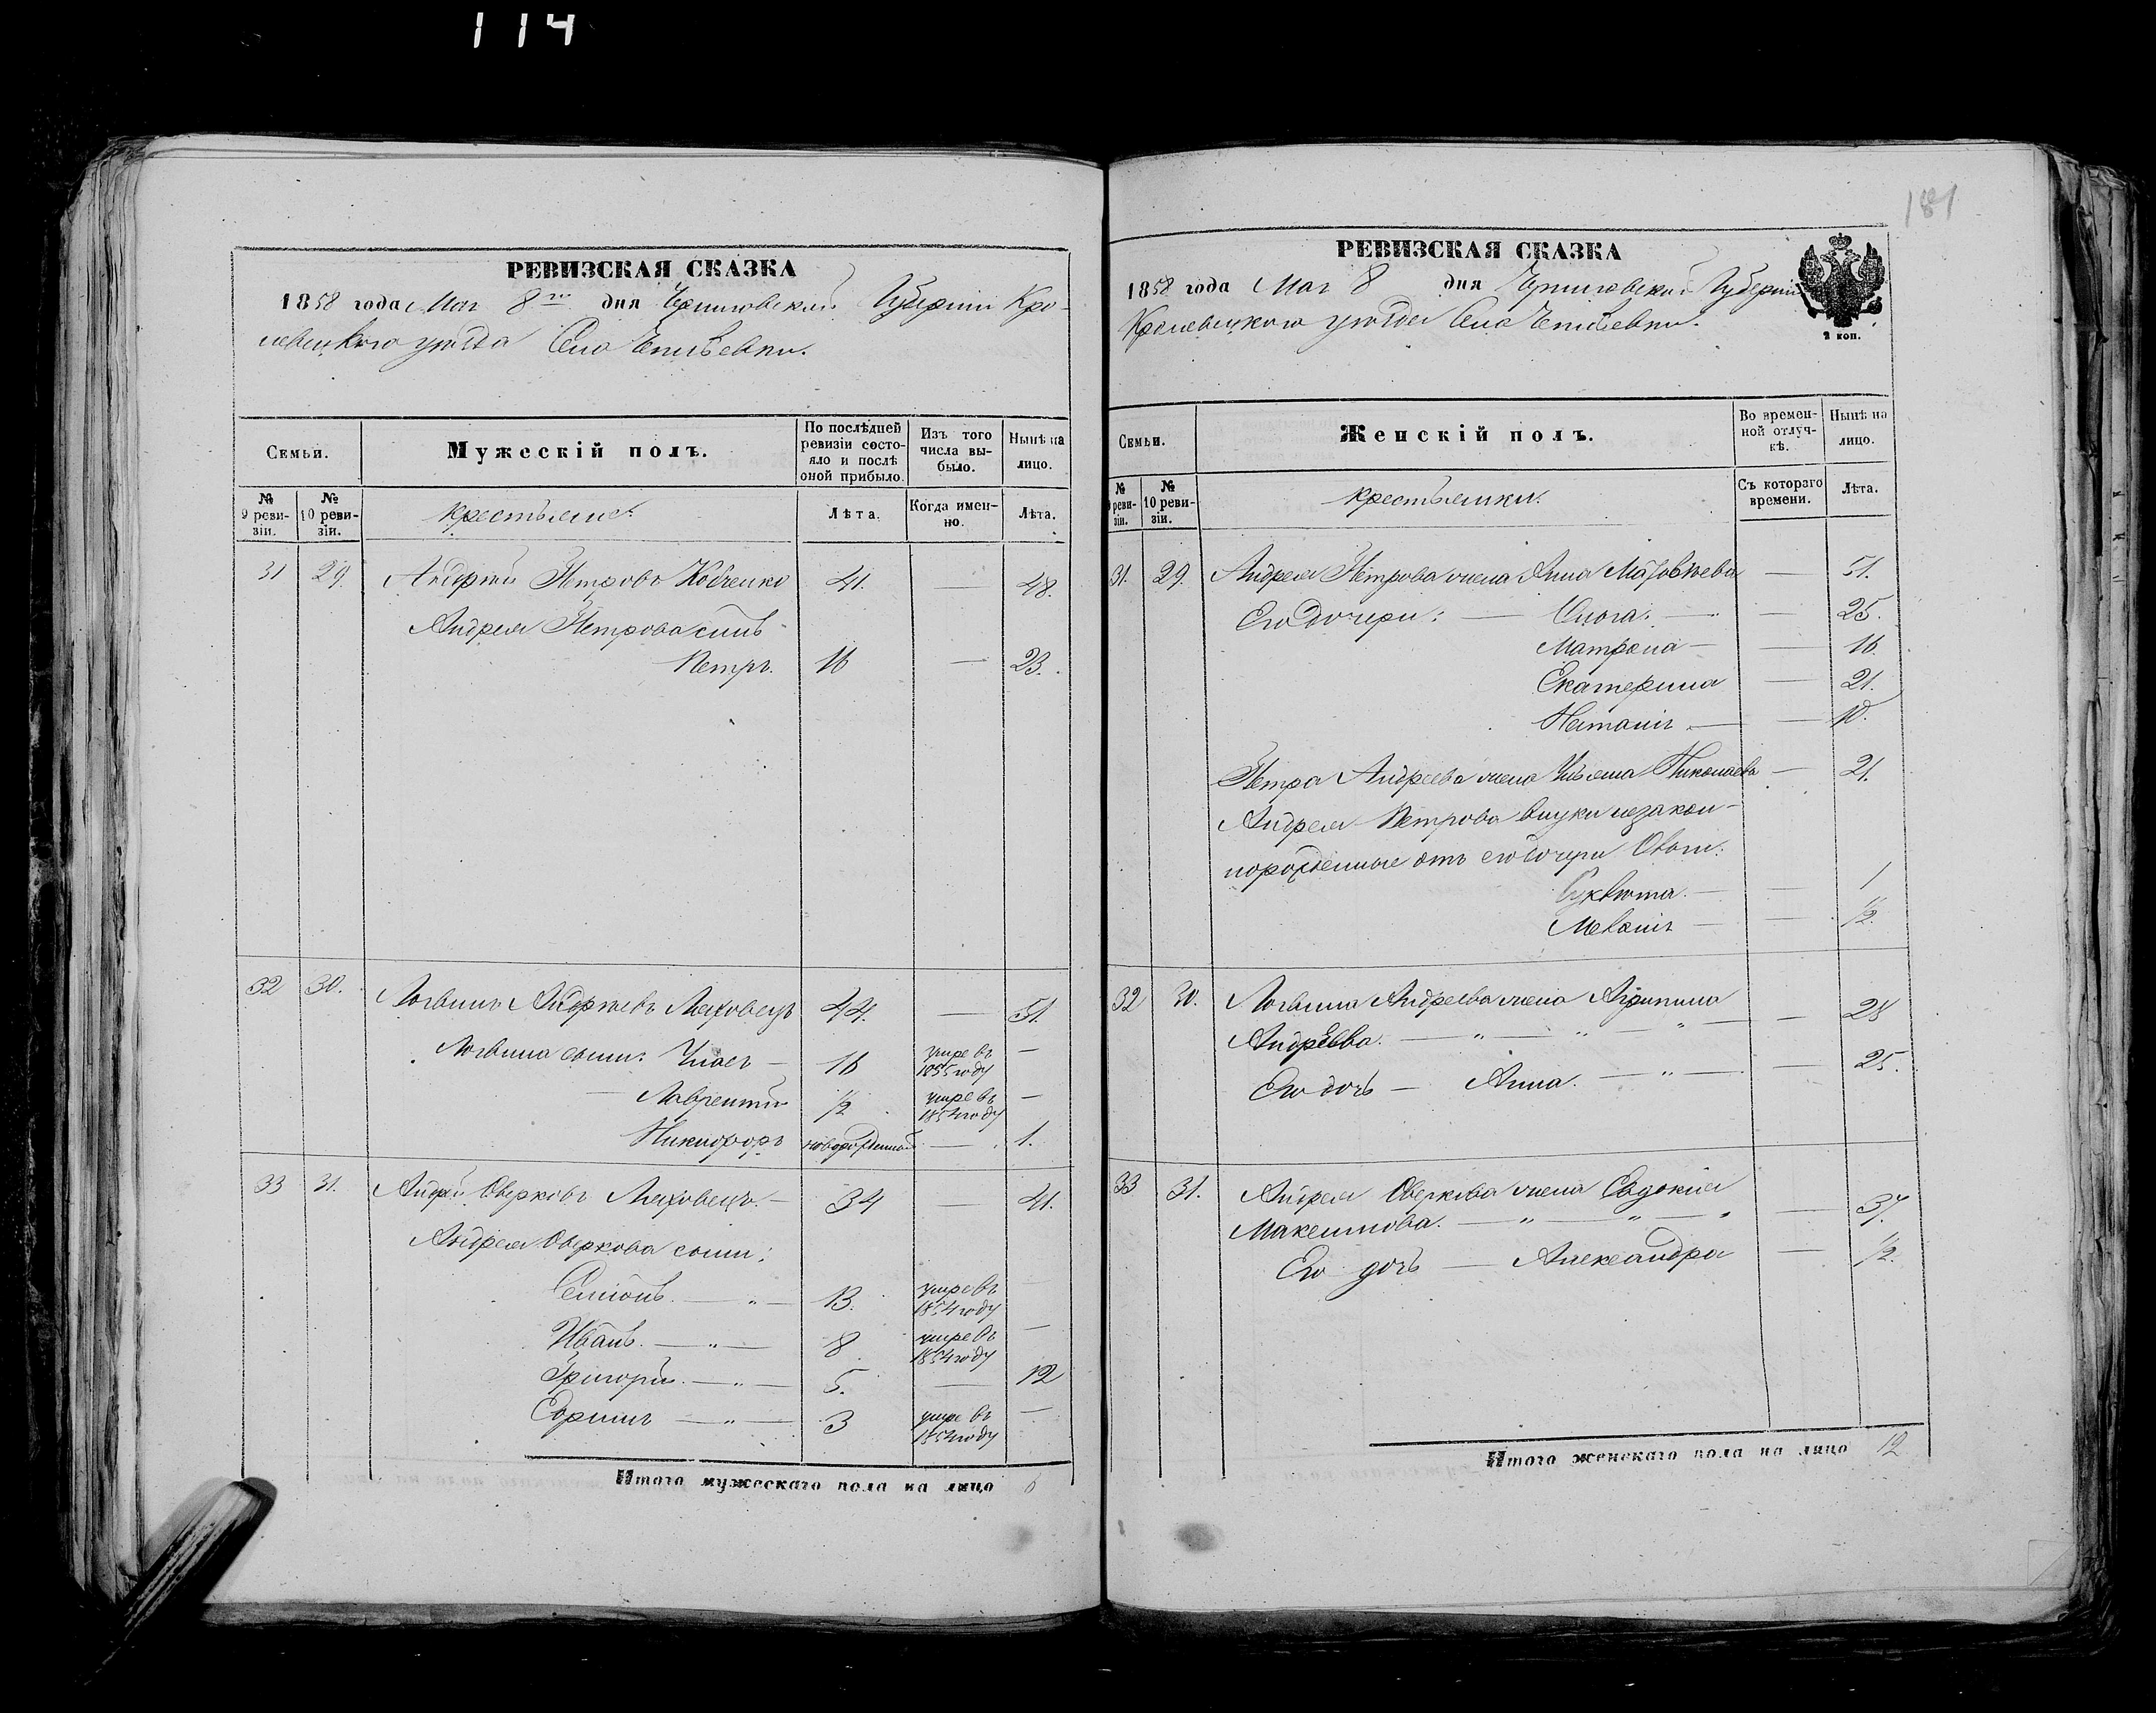 114
РЕВИЗСКАЯ СКАЗКА
1858 года Мая 8го дня Черниговской Губерніи Кро-
левецкого уѣзда Села
Семьи.
Мужескій полъ.
По послѣдней ревизіи состояло и послѣ оной прибыло.
Изъ того числа выбыло.
Нынѣ на лицо.
№ 9 ревизіи.
№ 10 ревизіи.
Крестьяне.
Лѣта.
Когда именно.
Лѣта.
31 29. Андрей Петровъ 41. — 48.
Андрея Петрова сынъ
Петръ. 16 — 23.
32 30. Логвинъ Андреевъ Ляховецъ 44. — 51.
Логвина сыны: 16 умре въ 1855 году —
Лаврентій 1/2 умре въ 1854 году —
Никифоръ новорожденный — 1.
33 31. Андрей Оверковъ Ляховецъ — 34 — 41.
Андрея Оверкова сыны:
13. умре въ 1854 году —
Иванъ. — „ — 8 умре въ 1854 году —
Григорій. — „ — 5. — 12
— „ — 3 умре въ 1854 году —
Итого мужескаго пола на лицо 6
181
РЕВИЗСКАЯ СКАЗКА
1858 года Мая 8 дня Черниговской Губерніи
Кролевецкого уѣзда Села
2 коп.
Семьи.
Женскій полъ.
Во временной отлучкѣ.
Нынѣ на лицо.
№ 9 ревизіи.
№ 10 ревизіи.
Крестьянки.
Съ котораго времени.
Лѣта.
31. 29. Андрея Петрова жена Анна Матвѣева — 51.
Его дочери: — — 25.
Матрона — — 16
Екатерина — 21.
Наталія — — 10.
Петра Андреева жена Ульяна Николаева — 21.
Андрея Петрова внуки незакон-
норожденные отъ его дочери
— — 1
Меланія — — 1/2.
32 30. Логвина Андреева жена Агрипина
Андреева. — „ — „ — „ — — 28
Его дочь — Анна. — „ — — 25.
33 31. Андрея Оверкова жена Евдокія
Максимова. — „ — „ — „ — 37.
Его дочь — Александра — 1/2.
Итого женскаго пола на лицо 12